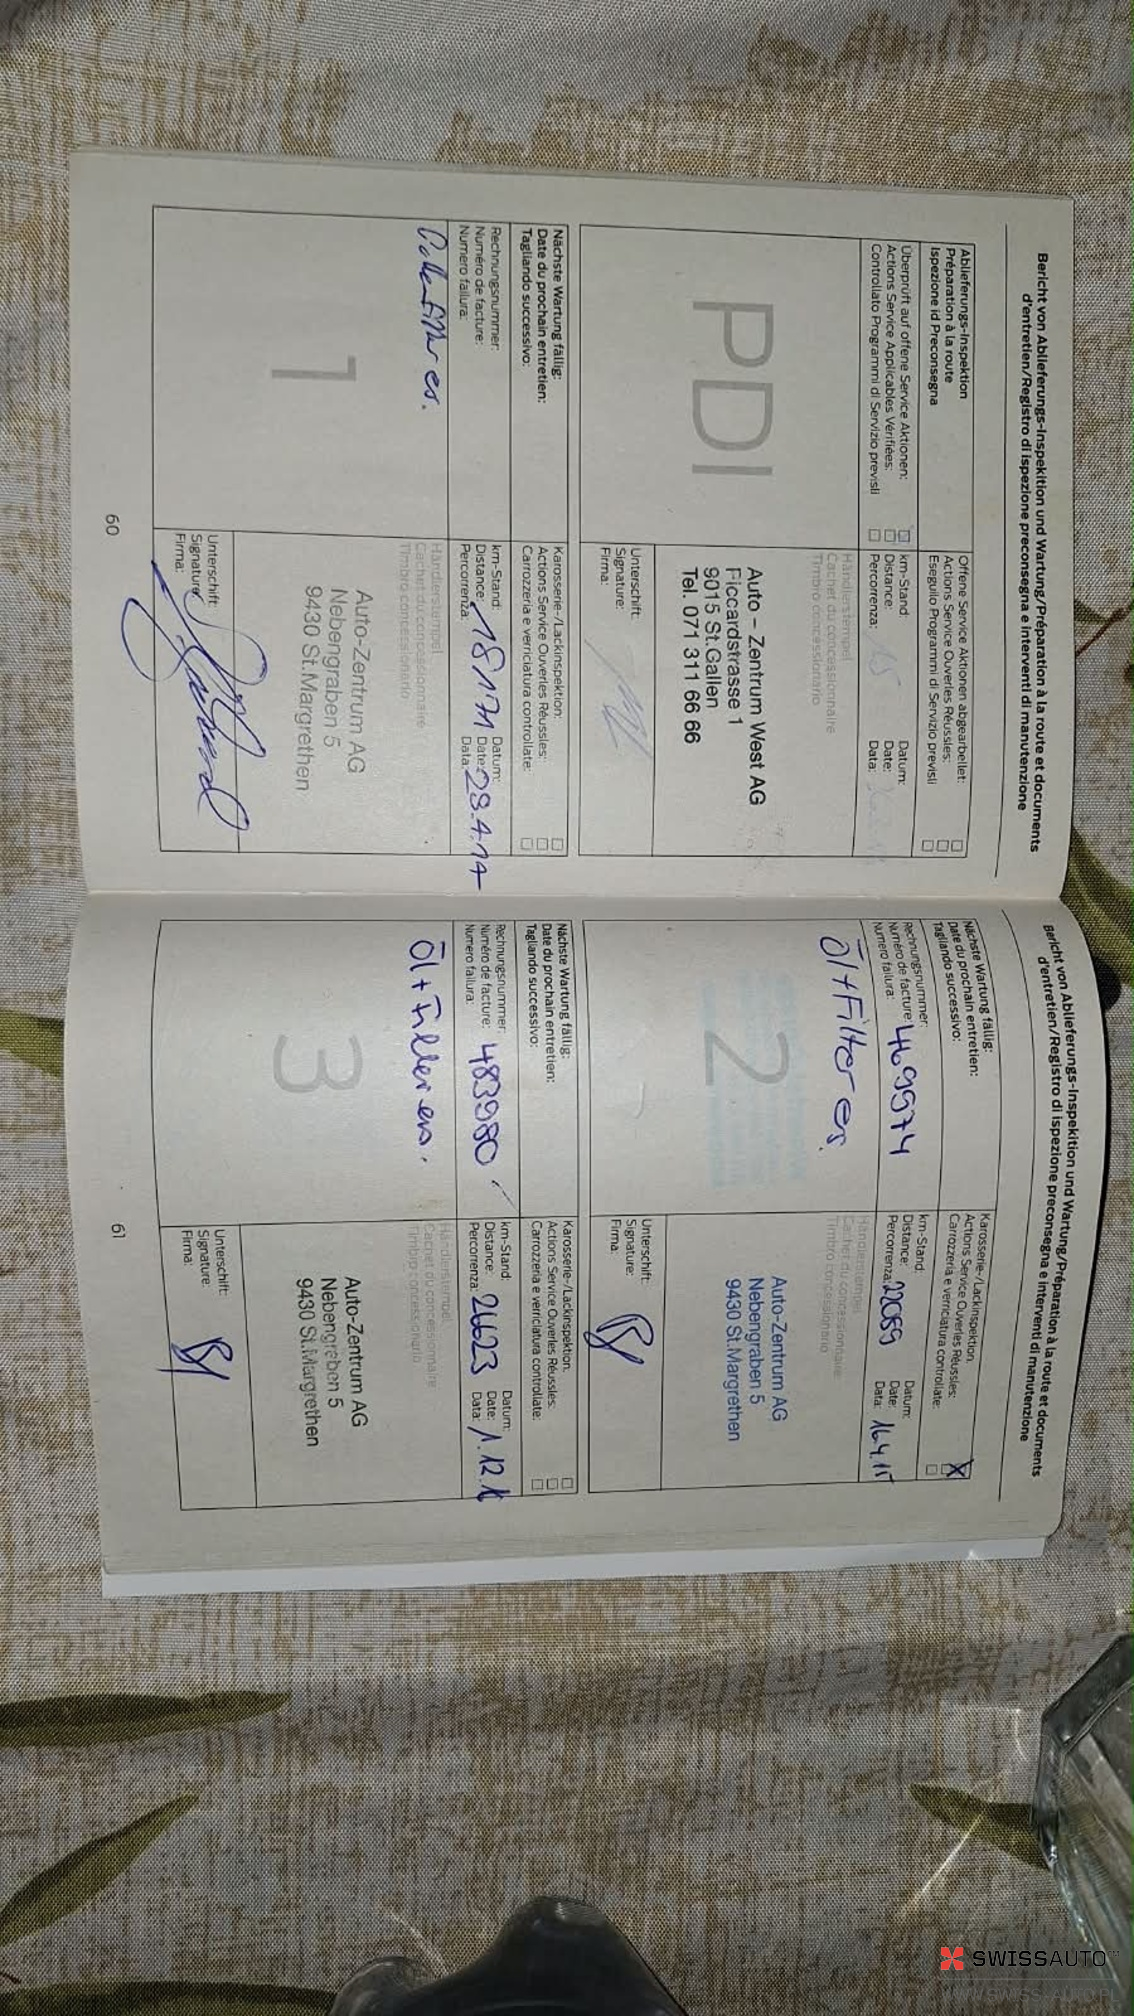 Bericht von Ablieferungs-Inspekition und Wartung/Préparation à la route et documents
d'entretien/Registro di ispezione preconsegna e interventi di manutenzione
Ablieferungs-Inspektion
Préparation à la route
Ispezione id Preconsegna
Offene Service Aktionen abgearbeitet:
Actions Service Ouvertes Réussies:
Eseguito Programmi di Servizio previsti
Überprüft auf offene Service Aktionen:
Actions Service Applicables Vérifiées:
Controllato Programmi di Servizio previsti
km-Stand:
Distance:
Percorrenza:
15
Datum:
Date:
Data:
PDI
Händlerstempel
Cachet du concessionnaire
Timbro concessionario
Auto – Zentrum West AG
Piccardstrasse 1
9015 St.Gallen
Tel. 071 311 66 66
Unterschift:
Signature:
Firma:
Nächste Wartung fällig:
Date du prochain entretien:
Tagliando successivo:
Karosserie-/Lackinspektion:
Actions Service Ouvertes Réussies:
Carrozzeria e verriciatura controllate:
Rechnungsnummer:
Numéro de facture:
Numero failura:
km-Stand:
Distance:
Percorrenza:
18171
Datum:
Date:
Data:
29.4.14
Pollenfilter er.
1
Händlerstempel
Cachet du concessionnaire
Timbro concessionario
Auto-Zentrum AG
Nebengraben 5
9430 St.Margrethen
Unterschift:
Signature:
Firma:
60
Bericht von Ablieferungs-Inspekition und Wartung/Préparation à la route et documents
d'entretien/Registro di ispezione preconsegna e interventi di manutenzione
Nächste Wartung fällig:
Date du prochain entretien:
Tagliando successivo:
Karosserie-/Lackinspektion:
Actions Service Ouvertes Réussies:
Carrozzeria e verriciatura controllate:
Rechnungsnummer:
Numéro de facture:
Numero failura:
469974
km-Stand:
Distance:
Percorrenza:
22089
Datum:
Date:
Data:
16.4.15
Öl+Filter er.
2
Händlerstempel
Cachet du concessionnaire
Timbro concessionario
Auto-Zentrum AG
Nebengraben 5
9430 St.Margrethen
Unterschift:
Signature:
Firma:
Nächste Wartung fällig:
Date du prochain entretien:
Tagliando successivo:
Karosserie-/Lackinspektion:
Actions Service Ouvertes Réussies:
Carrozzeria e verriciatura controllate:
Rechnungsnummer:
Numéro de facture:
Numero failura:
483980
km-Stand:
Distance:
Percorrenza:
26623
Datum:
Date:
Data:
1.12.
Öl+Filter ers.
3
Händlerstempel
Cachet du concessionnaire
Timbro concessionario
Auto-Zentrum AG
Nebengraben 5
9430 St.Margrethen
Unterschift:
Signature:
Firma:
61
SWISSAUTO